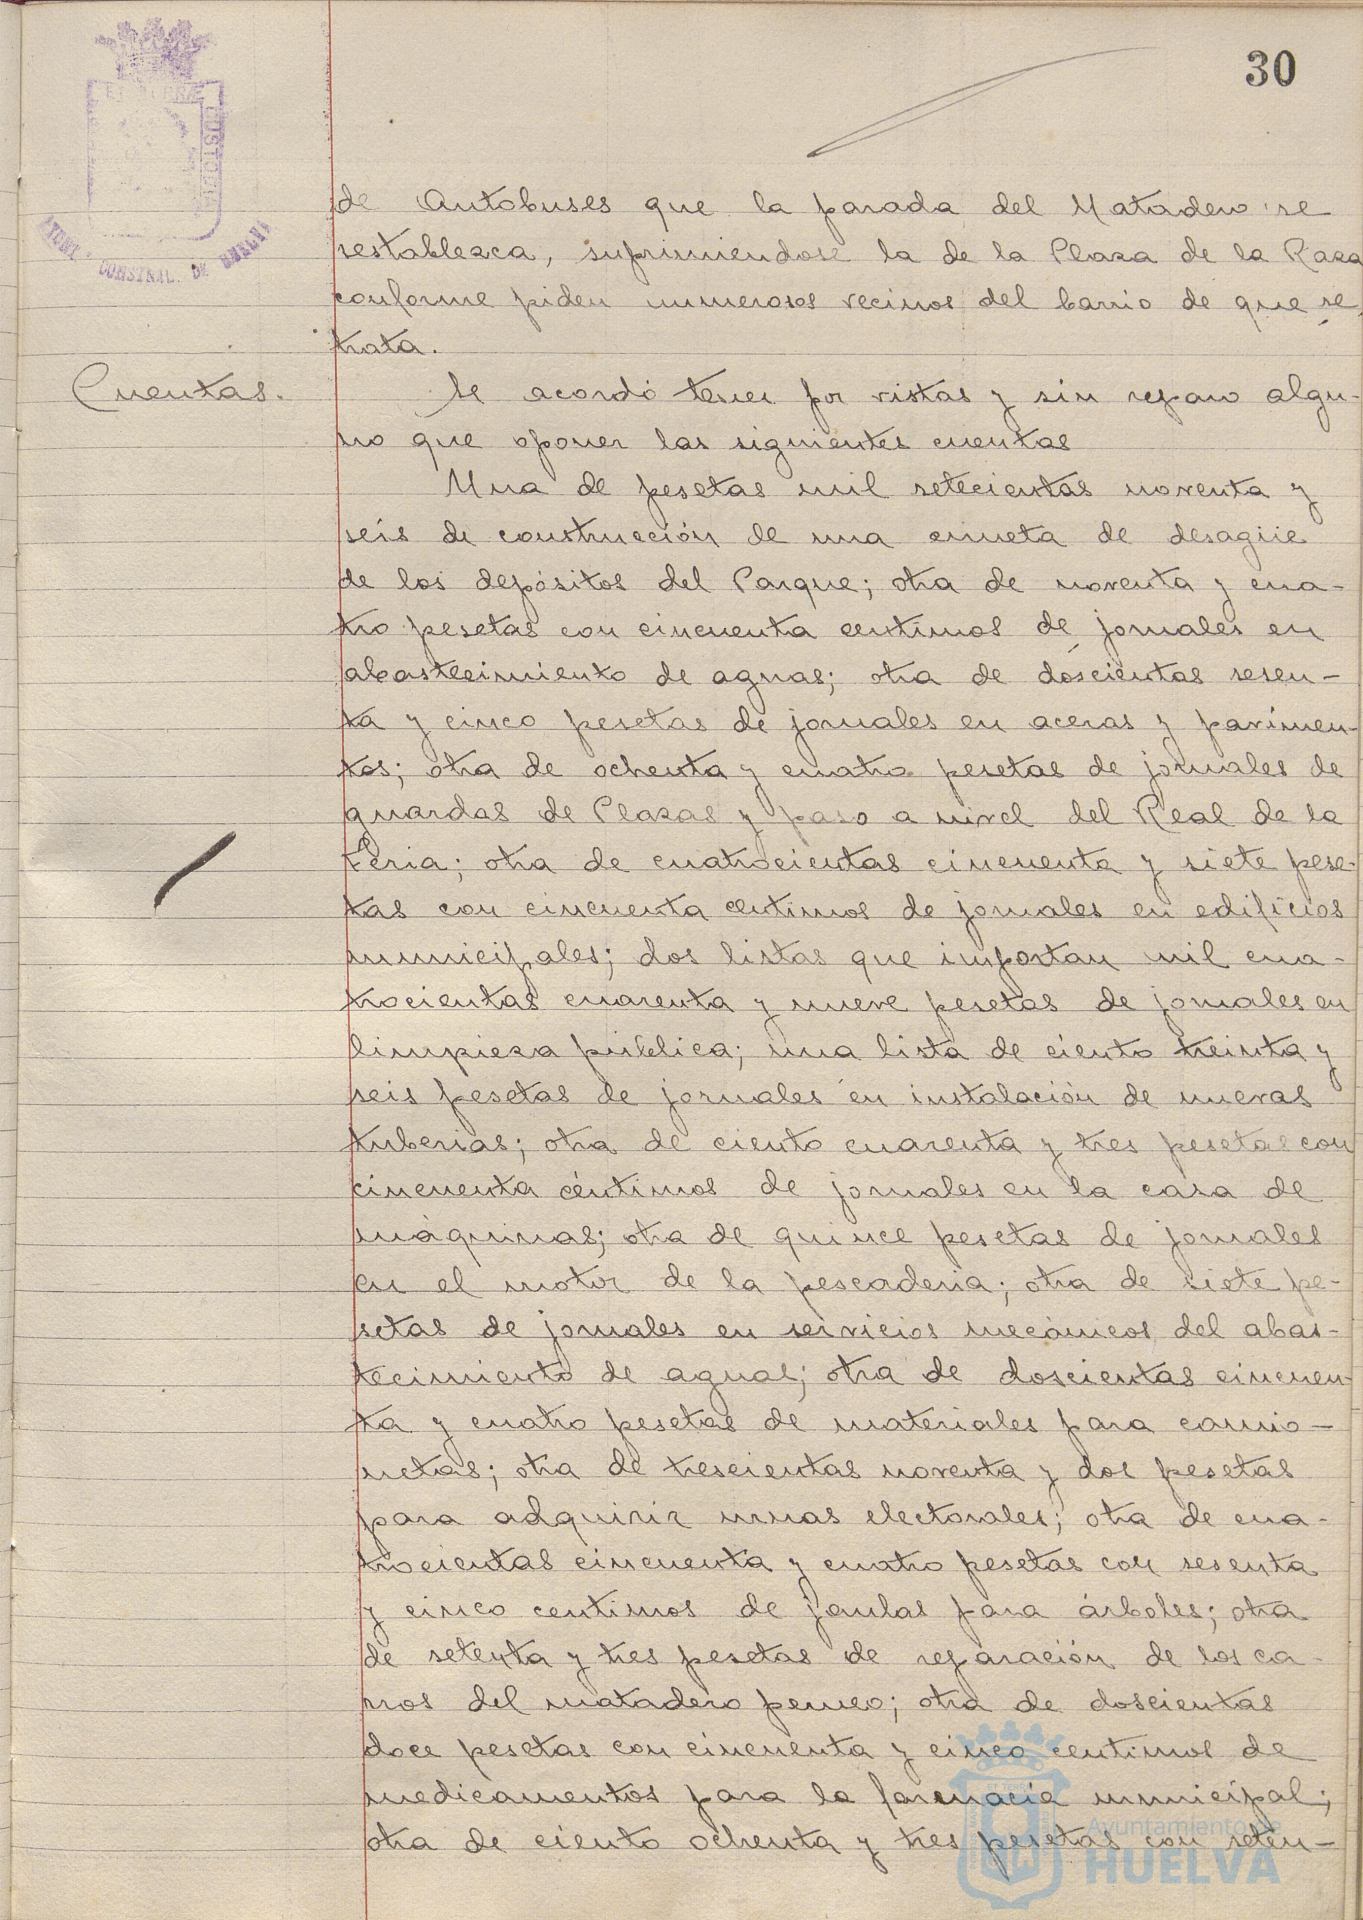 30
ET TERRÆ
CUSTODIA
AYUNT. CONSTNAL. DE HUELVA
de Autobuses que la parada del Matadero se
restablezca, suprimiendose la de la Plaza de la Raza
conforme piden numerosos vecinos del barrio de que se
trata.
Cuentas.
Se acordó tener por vistas y sin reparo algu-
no que oponer las siguientes cuentas
Una de pesetas mil setecientas noventa y
seis de construcción de una cuneta de desagüe
de los depósitos del Parque; otra de noventa y cua-
tro pesetas con cincuenta centimos de jornales en
abastecimiento de aguas; otra de doscientas sesen-
ta y cinco pesetas de jornales en aceras y pavimen-
tos; otra de ochenta y cuatro pesetas de jornales de
guardas de Plazas y paso a nivel del Real de la
Feria; otra de cuatrocientas cincuenta y siete pese-
tas con cincuenta centimos de jornales en edificios
municipales; dos listas que importan mil cua-
trocientas cuarenta y nueve pesetas de jornales en
limpieza pública; una lista de ciento treinta y
seis pesetas de jornales en instalación de nuevas
tuberias; otra de ciento cuarenta y tres pesetas con
cincuenta céntimos de jornales en la casa de
máquinas; otra de quince pesetas de jornales
en el motor de la pescaderia; otra de siete pe-
setas de jornales en servicios mecánicos del abas-
tecimiento de aguas; otra de doscientas cincuen-
ta y cuatro pesetas de materiales para camio-
netas; otra de trescientas noventa y dos pesetas
para adquirir urnas electorales; otra de cua-
trocientas cincuenta y cuatro pesetas con sesenta
y cinco centimos de jaulas para árboles; otra
de setenta y tres pesetas de reparación de los ca-
rros del matadero perneo; otra de doscientas
doce pesetas con cincuenta y cinco centimos de
medicamentos para la farmacia municipal;
otra de ciento ochenta y tres pesetas con seten-
Ayuntamiento de
HUELVA